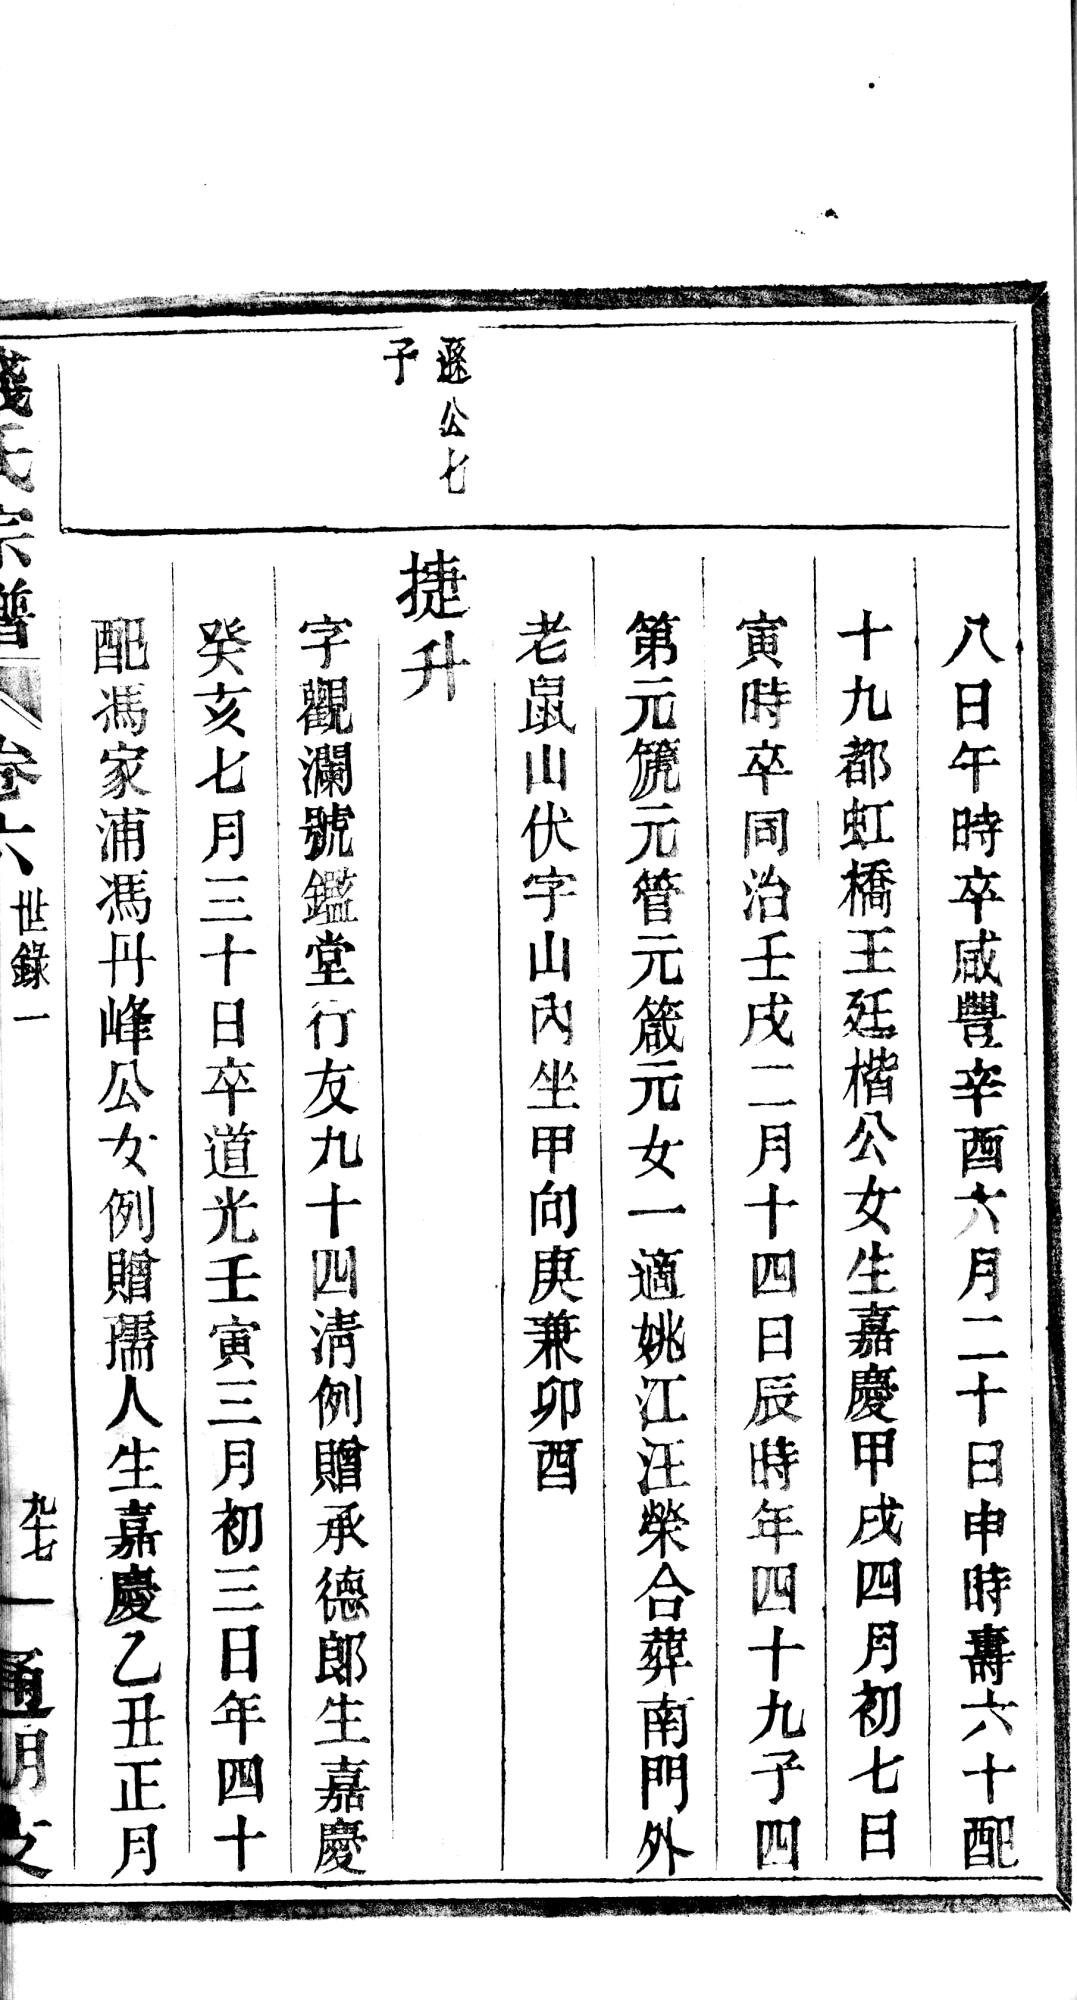 八日午時卒咸豐辛酉六月二十日申時壽六十配
十九都虹橋王廷楷公女生嘉慶甲戌四月初七日
寅時卒同治壬戌二月十四日辰時年四十九子四
第元箎元管元箴元女一適姚江汪榮合葬南門外
老鼠山伏字山內坐甲向庚兼卯酉
遜公七
子
捷升
字觀瀾號鑑堂行友九十四清例贈承德郎生嘉慶
癸亥七月三十日卒道光壬寅三月初三日年四十
配馮家浦馮丹峰公女例贈孺人生嘉慶乙丑正月
錢氏宗譜
卷六
世錄一
九七
通明支